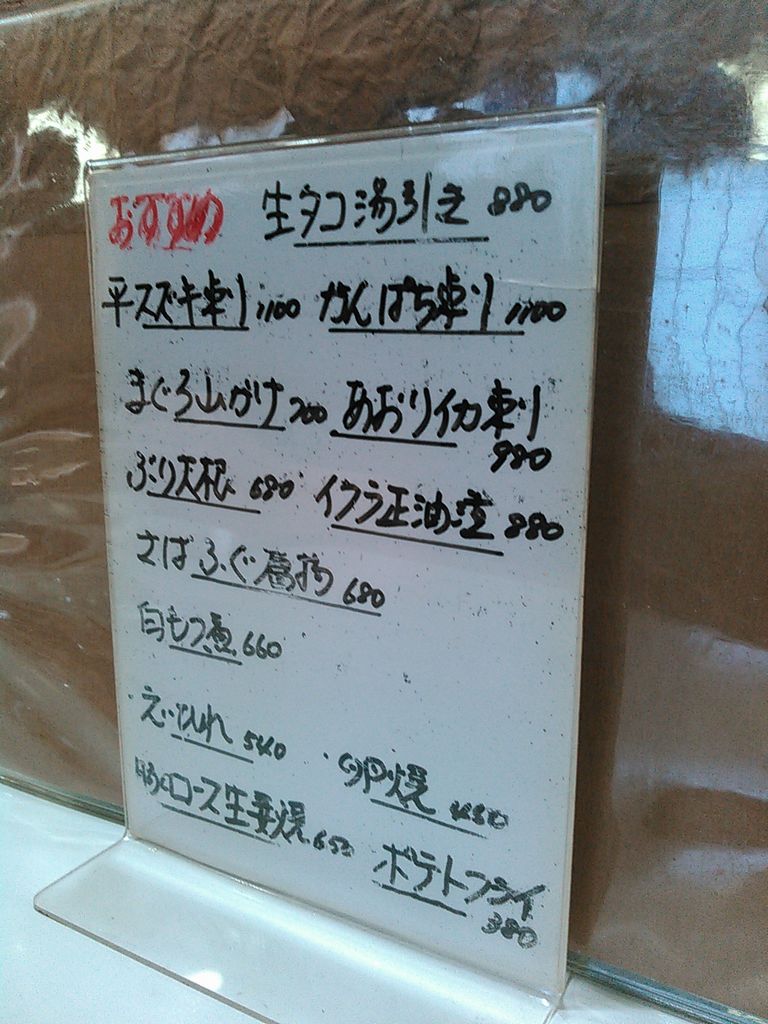 おすすめ 生タコ湯引き 880
平スズキ刺 1100 かんぱち刺 1100
まぐろ山かけ 700 あおりイカ刺 980
ぶり大根 680 イクラ正油漬 880
さばふぐ唐揚 680
白もつ煮 660
えいひれ 540 卵焼 480
豚ロース生姜焼 650 ポテトフライ 380